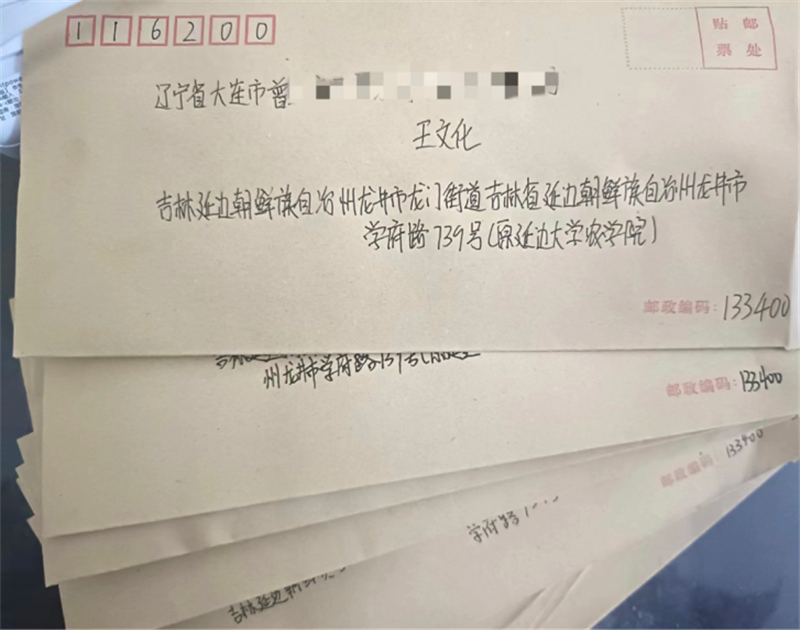 116200
贴 邮
票 处
辽宁省大连市普
王文化
吉林延边朝鲜族自治州龙井市龙门街道吉林省延边朝鲜族自治州龙井市
学府路739号(原延边大学农学院)
邮政编码:133400
州龙井市学府路739号
邮政编码:133400
邮政编码:133400
学府路
吉林延边朝鲜